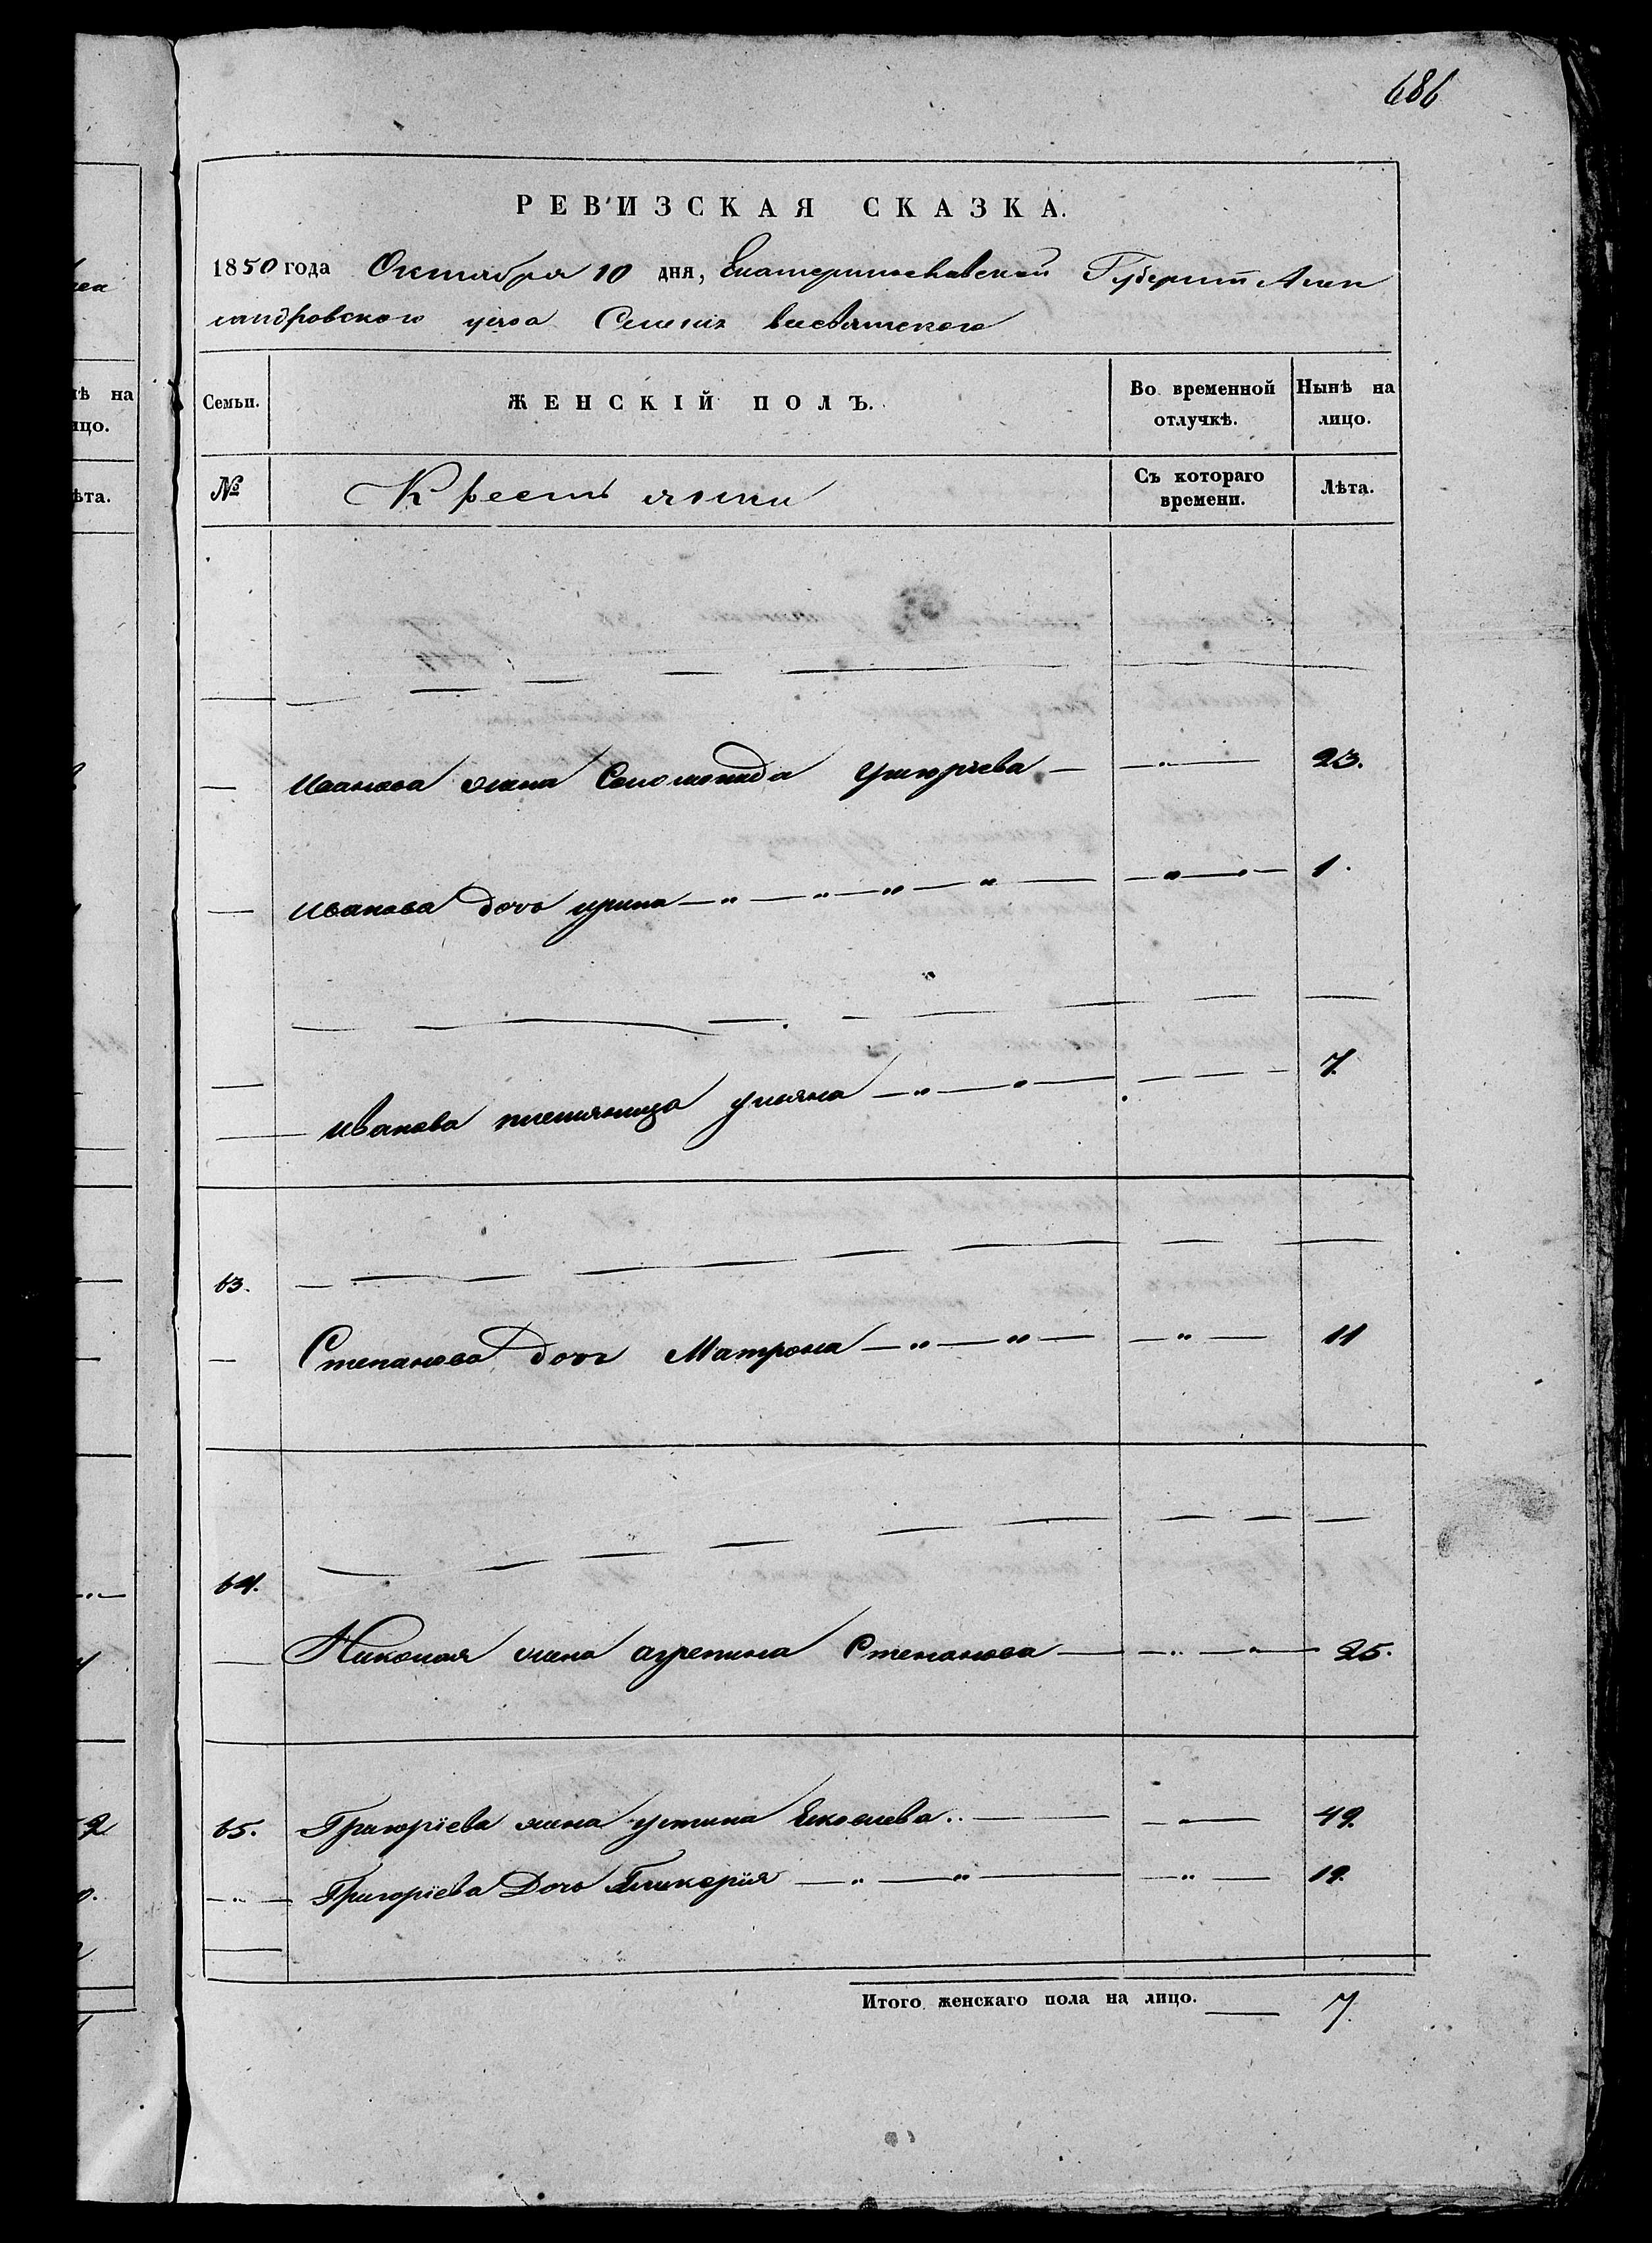 686
РЕВИЗСКАЯ СКАЗКА.
1850 года Октября 10 дня, Екатеринославской Губернiи Алек
сандровского уезда Селенiя всесвятского
Семьи. ЖЕНСКІЙ ПОЛЪ. Во временной отлучкѣ. Нынѣ на лицо.
№ Крестьяни Съ котораго времени. Лѣта.
Иванова жена Соломонида Григорьева 23.
Иванова дочь ирина 1.
Иванова племяница ульяна 7.
63.
Степанова дочь Матрона 11
64.
Николая жена агрепина Степанова 25.
65. Григорiева жена устина Яковлева 49.
Григорiева Дочь Гликерiя 19.
Итого женскаго пола на лицо. 7.